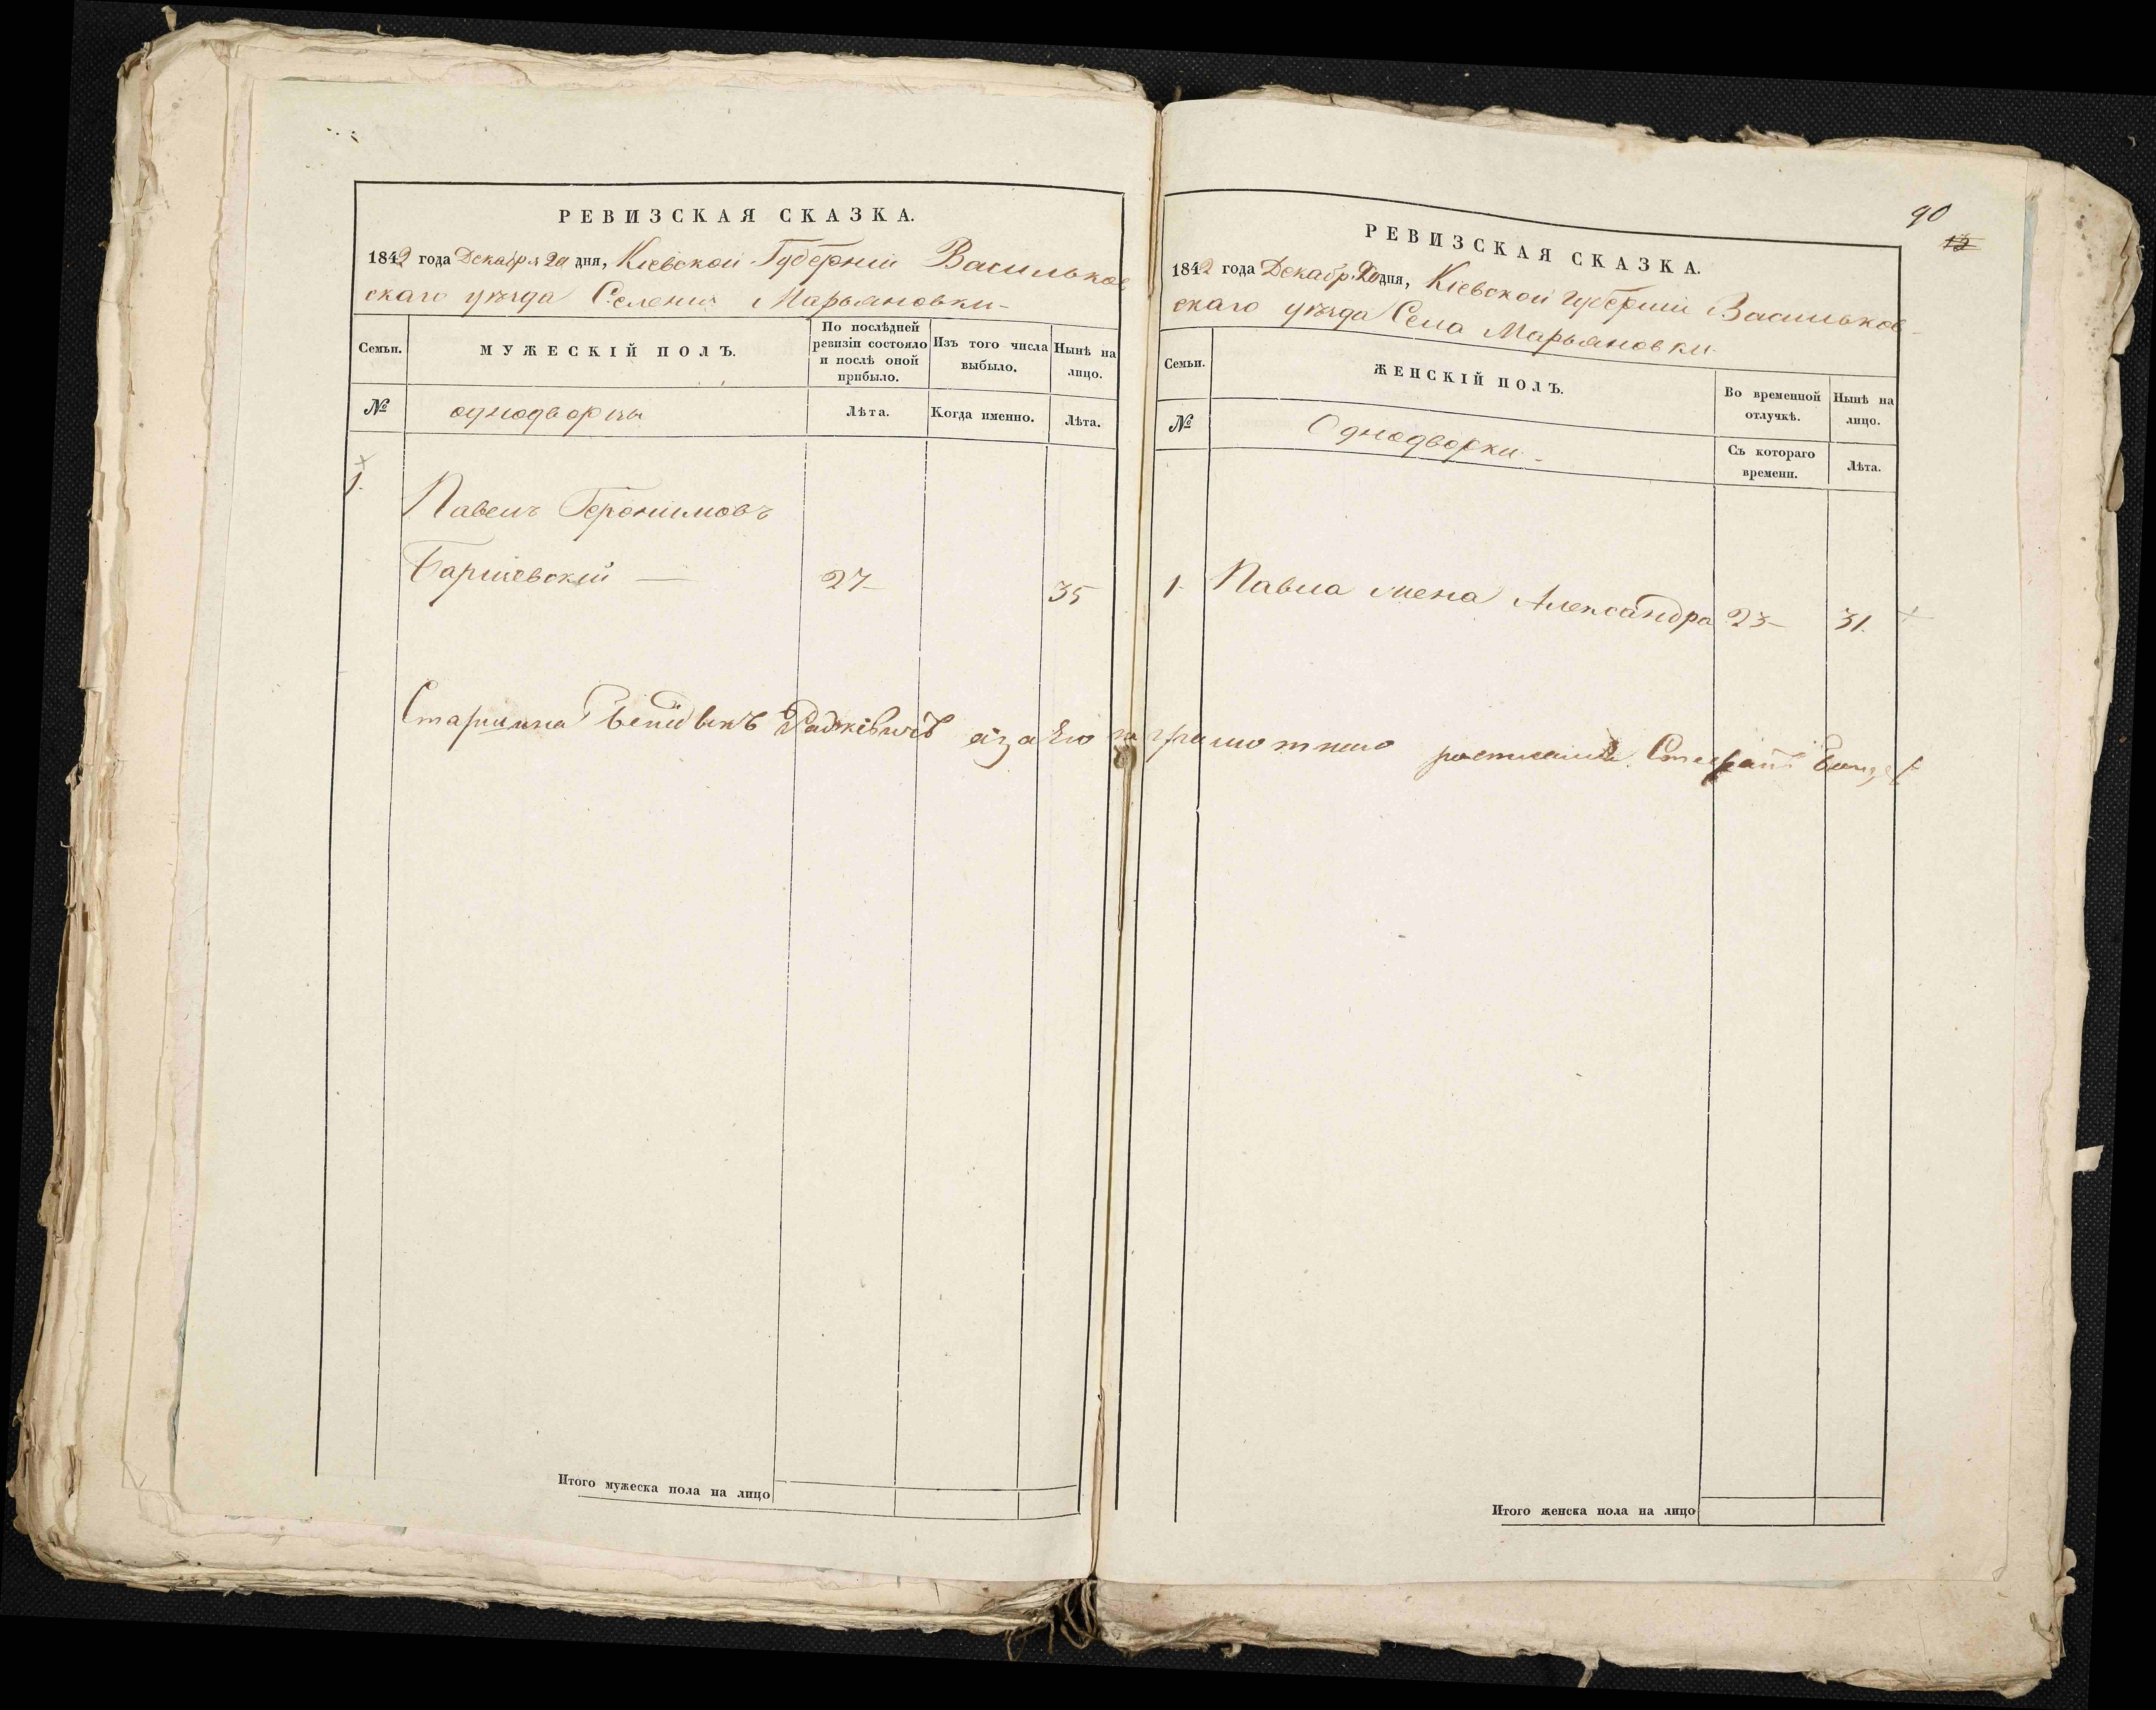 РЕВИЗСКАЯ СКАЗКА.
1842 года Декабря 20 дня, Кіевской Губерніи Васильков
скаго уѣзда Селенія Марьяновки-
Семьи.
МУЖЕСКІЙ ПОЛЪ.
По послѣдней ревизіи состояло и послѣ оной прибыло.
Изъ того числа выбыло.
Нынѣ на лицо.
№
однодворцы
Лѣта.
Когда именно.
Лѣта.
1.
Павелъ Геронимовъ
27
35
Старшина
Итого мужеска пола на лицо
90
12
РЕВИЗСКАЯ СКАЗКА.
1842 года Декабр. 20 дня, Кіевской Губерніи Васильков-
скаго уѣзда Села Марьяновки
Семьи.
ЖЕНСКІЙ ПОЛЪ.
Во временной отлучкѣ.
Нынѣ на лицо.
№
Однодворки-
Съ котораго времени.
Лѣта.
1. Павла жена Александра 23 31.
Итого женска пола на лицо